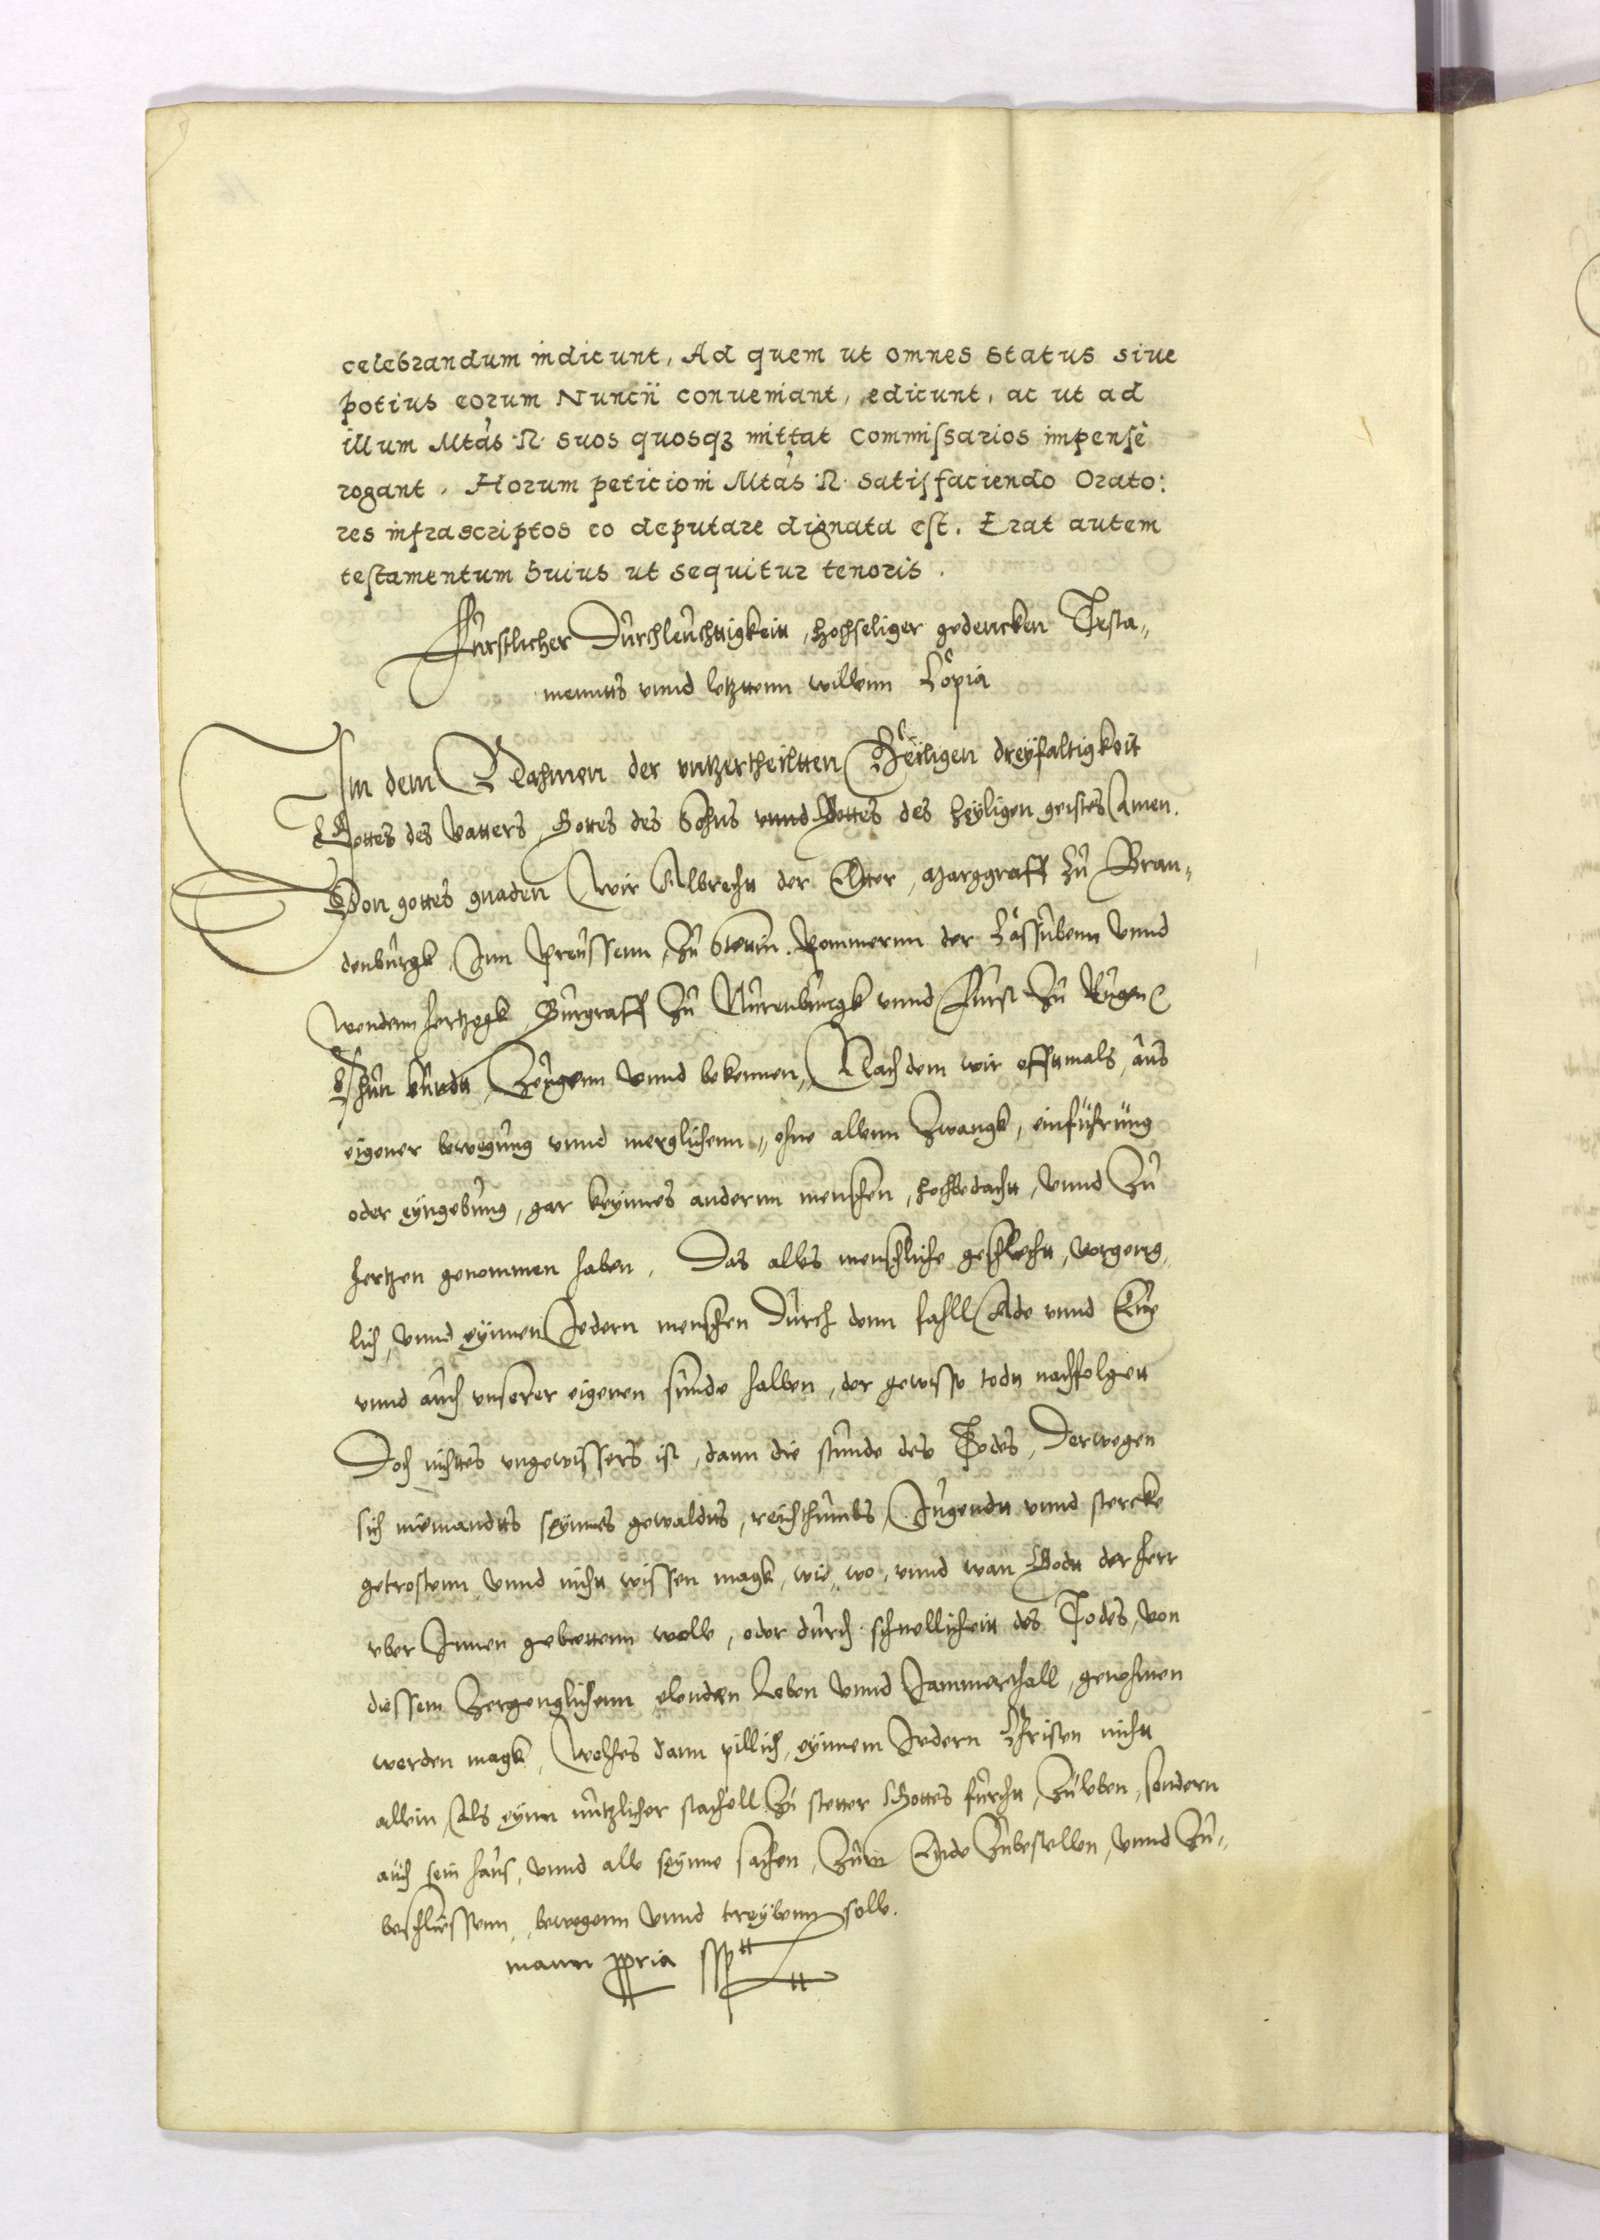 celebrandum indicunt, Ad quem ut omnes status sive
potius eorum Nuncii conveniant, edicunt, ac ut ad
illum Mtas R. suos quosqz mittat Commissarios impense
rogant. Horum peticioni Mtas R. satisfaciendo Orato:
res infrascriptos eo deputare dignata est. Erat autem
testamentum huius ut sequitur tenoris.
Furstlicher Durchleuchttigkeitt, hochseliger gedencken Testa„
menntts vnnd letzttenn willenn Copia
In dem Nahmen der vntzertheiltten Heiligen dreyfaltigkeit
Gottes des Vatters, Gottes des Sohns vnnd Gottes des heyligen geistes Amen.
Von gottes gnaden Wir Albrecht der Elter, Marggraff Zu Bran„
denburgk, Inn Preussenn, Zu Stettin. Pommernn der Cassubenn Vnnd
Wendenn hertzogk, Burgraff Zu Nurenburgk vnnd Furst Zu Rugen
Thun kundtt, Zeugenn Vnnd bekennen, Nach dem wir offtmals, aus
eigener bewegung vnnd merglichenn, ohne allenn Zwangk, einfuhrung
oder eyngebung, gar keynnes andernn menschen, hochbedacht, Vnnd Zu
hertzen genommen haben, Das alles menschliche geschlecht, vorgeng,
lich, Vnnd eynnen Jedern menschen Durch denn fahll Ade vnnd Eue
vnnd auch vnserer eigenen sunde halben, der gewisse todtt nachfolgett
Doch nichttes vngewissers ist, dann die stunde des Todes, Derwegen
sich niemandtts seynnes gewaldtts, reichthumbs, Jugendtt vnnd stercke
getrostenn Vnnd nicht wissen magk, wie, wo, vnnd wan Godtt der herr
vber Innen gebiettenn wolle, oder durch schnellicheitt des Todes, Von
diessem Zergenglichenn elenden Leben Vnnd Jammerthall, genohmen
werden magk, Welches dann pillich, eynnem Jedern Christen nicht
allein, Als eynn nutzlicher stachell Zu stetter Gottes furcht, Zuleben, sondern
auch sein haus, Vnnd alle seynne sachen, Zum Ende Zubestellen, Vnnd Zu„
beschliessenn, bewegenn Vnnd treybenn solle.
manu ppria sspt